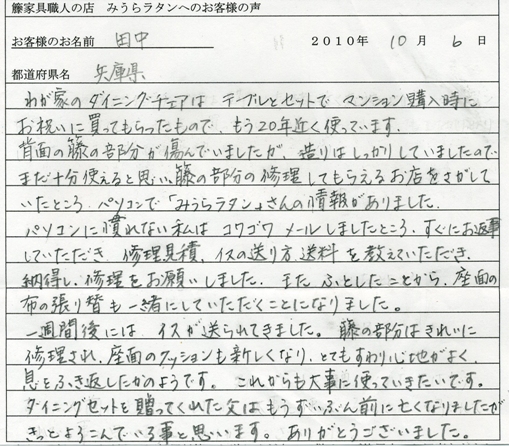 籐家具職人の店　みうらラタンへのお客様の声
お客様のお名前　田中　2010年 10月 6日
都道府県名　兵庫県
わが家のダイニングチェアは テーブルとセットで マンション購入時に
お祝いに買ってもらったもので、もう20年近く使っています.
背面の籐の部分が傷んでいましたが、造りはしっかりしていましたので
まだ十分使えると思い、籐の部分の修理してもらえるお店をさがして
いたところ、パソコンで「みうらラタン」さんの情報がありました.
パソコンに慣れない私は コワゴワ メールしましたところ、すぐにお返事
していただき、修理見積、イスの送り方、送料 を教えていただき、
納得し、修理をお願いしました. また ふとしたことから、座面の
布の張り替も一緒にしていただくことになりました。
一週間後には イスが送られてきました。 籐の部分はきれいに
修理され、座面のクッションも新しくなり、とてもすわり心地がよく、
息をふき返したかのようです。 これからも大事に使っていきたいです。
ダイニングセットを贈ってくれた父は もうずいぶん前に亡くなりましたが
きっとよろこんでいる事と思います。ありがとうございました。